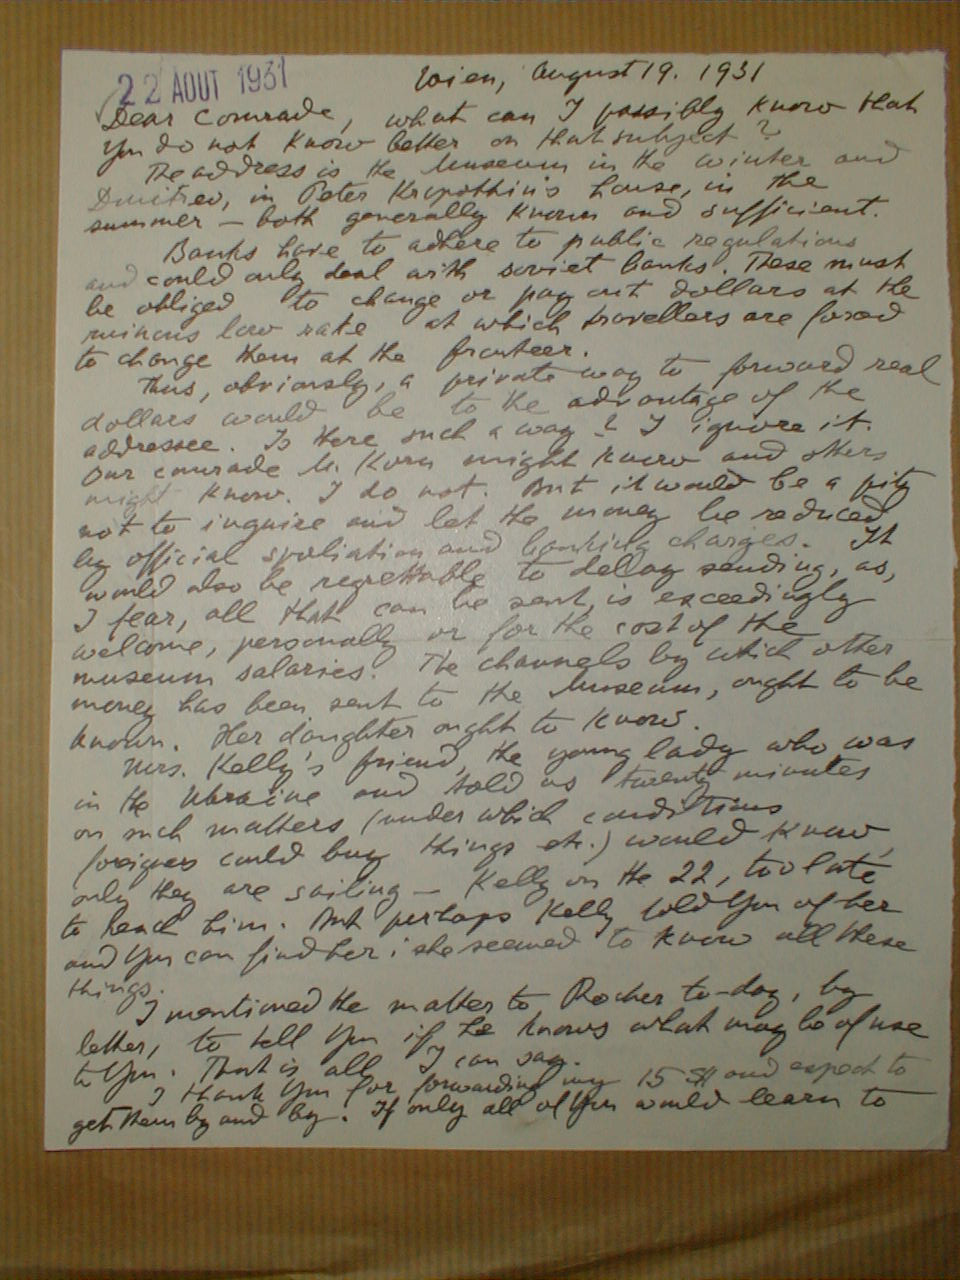 22 AOUT 1931
Wien, August 19. 1931
Dear Comrade, what can I possibly know that
you do not know better on that subject?
The address is the Museum in the winter and
Dmitrev, in Peter Kropotkin's house, in the
summer — both generally known and sufficient.
Banks have to adhere to public regulations
and could only deal with soviet banks. These must
be obliged to change or pay out dollars at the
ruinous low rate at which travellers are forced
to change them at the fronteer.
Thus, obviously, a private way to forward real
dollars would be to the advantage of the
addressee. Is there such a way? I ignore it.
Our comrade M. Korn might know and others
might know. I do not. But it would be a pity
not to inquire and let the money be reduced
by official spoliation and banking charges. It
would also be regrettable to delay sending, as,
I fear, all that can be sent, is exceedingly
welcome, personally or for the cost of the
museum salaries. The channels by which other
money has been sent to the Museum, ought to be
known. Her daughter ought to know.
Mrs. Kelly's friend, the young lady who was
in the Ukraine and told us twenty minutes
on such matters (under which conditions
foreigers could buy things etc.) would know,
only they are sailing — Kelly on the 22, too late
to reach him. But perhaps Kelly told you of her
and you can find her; she seemed to know all these
things.
I mentioned the matter to Rocker to-day, by
letter, to tell you if he knows what may be of use
to you. That is all I can say.
I thank you for forwarding my 15 Sh and expect to
get them by and by. If only all of you would learn to